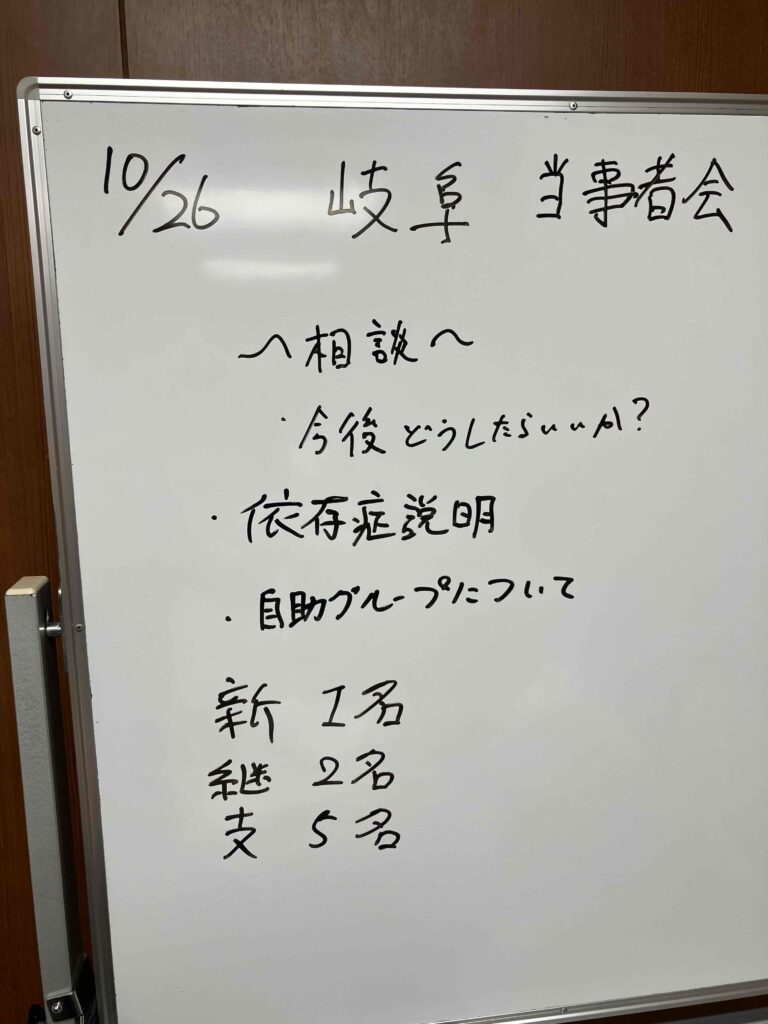 10/26 岐阜 当事者会
〜相談〜
・今後どうしたらいいか?
・依存症説明
・自助グループについて
新 1名
継 2名
支 5名